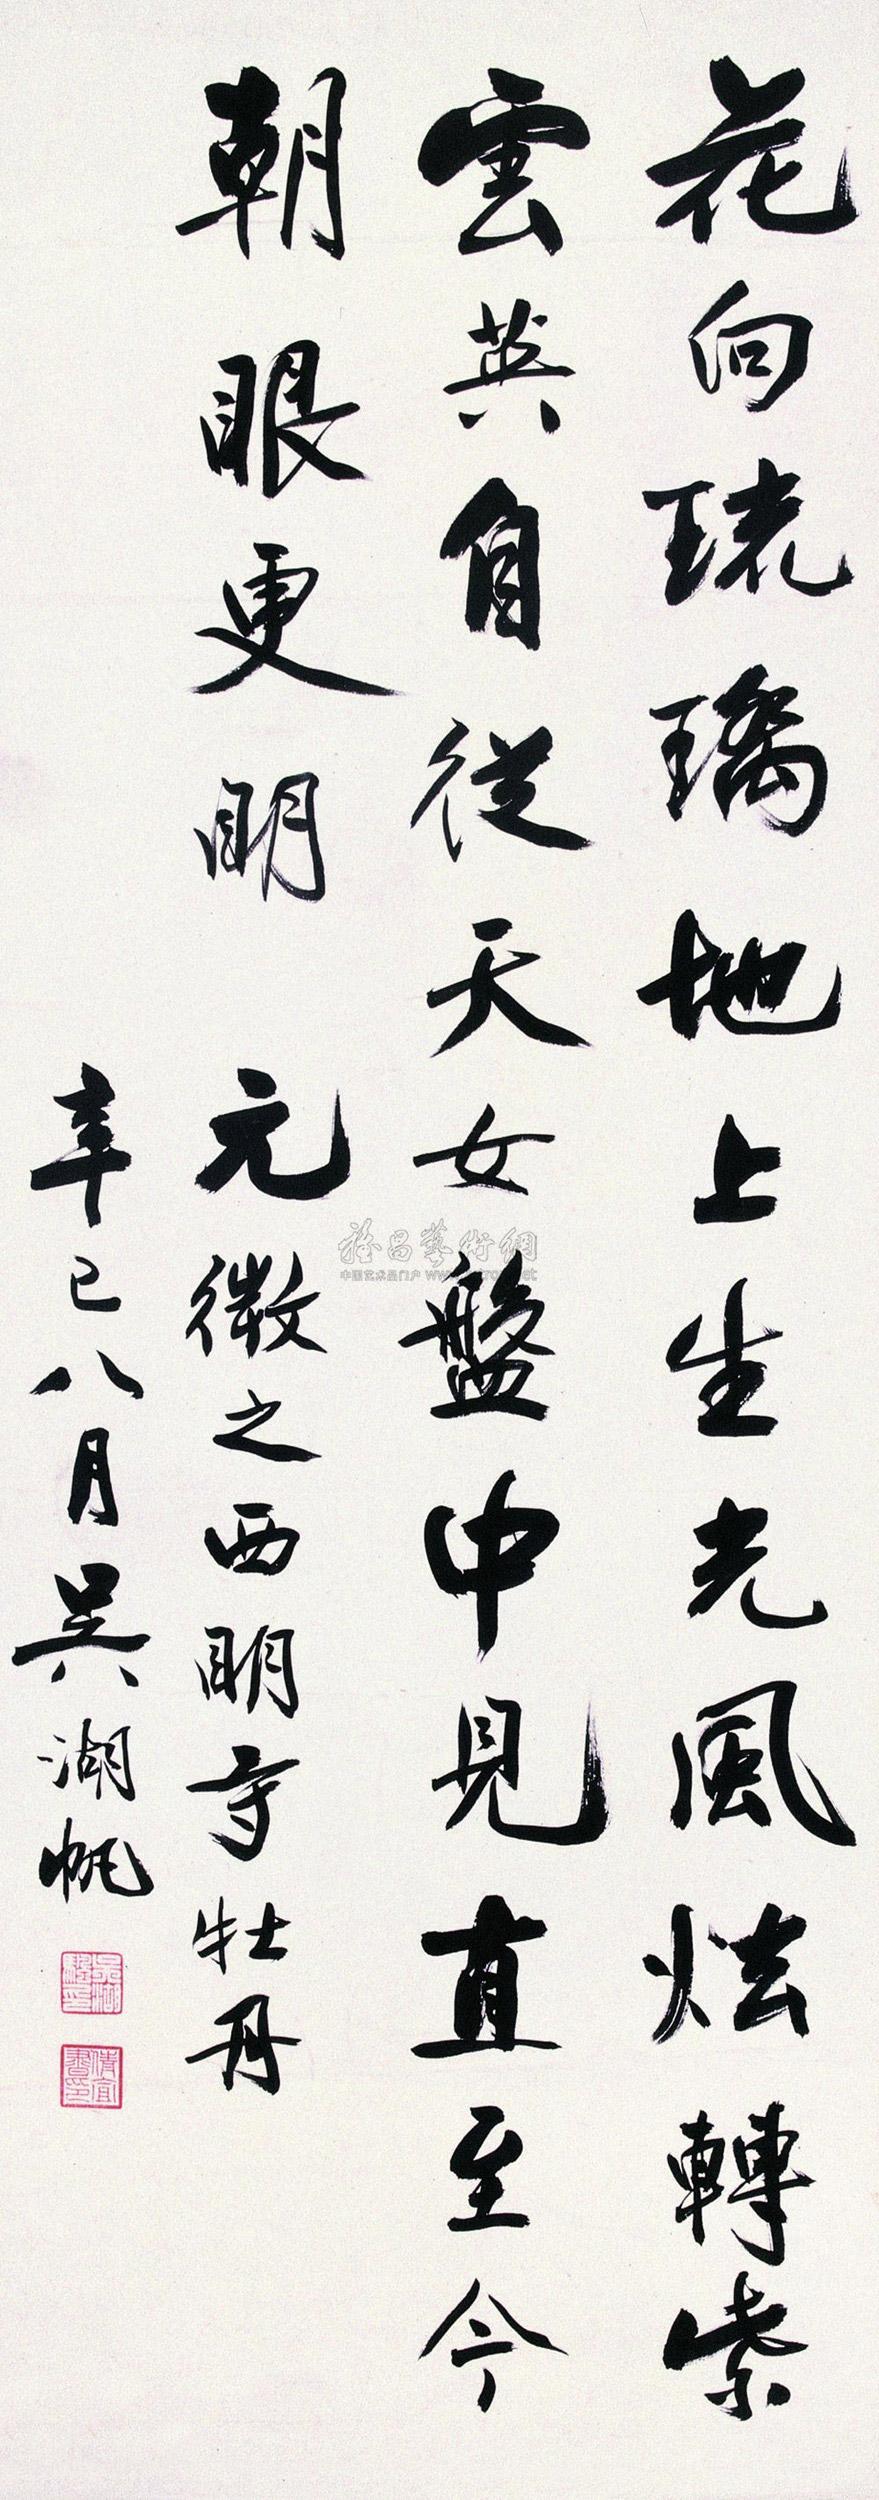 花向琉璃地上生光風炫轉紫
雲英自從天女盤中見直至今
朝眼更明
元微之西明寺牡丹
辛巳八月吳湖帆
雅昌藝術網
中国艺术品门户 www.artron.net
倩宣書印